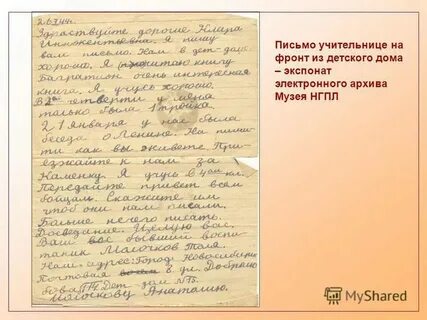 Здраствуйте дорогие Клара
Иннокентьевна. Я пишу
вам письмо. Нам в дет-доме
хорошо. Я прочитаю книгу
Багратион очень интересная
книга. Я учусь хорошо.
В 2ой четверти у меня
только была 1 тройка.
21 Января у нас была
беседа о Ленине. На
как вы живете При-
езжайте к нам за
Каменку. Я учусь в 4ом кл.
Передайте привет всем
бойцам. Скажите им
чтоб они нам писали.
Больше нечего писать.
Досведание. Целую вас.
Ваш вас бывший воспи-
таник Молочков Толя.
Нам адрес: Город: Новосибирск
Почтовая 8 ул. Добролю
бова Дет дом №
Молочкову Анатолию.
Письмо учительнице на
фронт из детского дома
– экспонат
электронного архива
Музея НГПЛ
MyShared